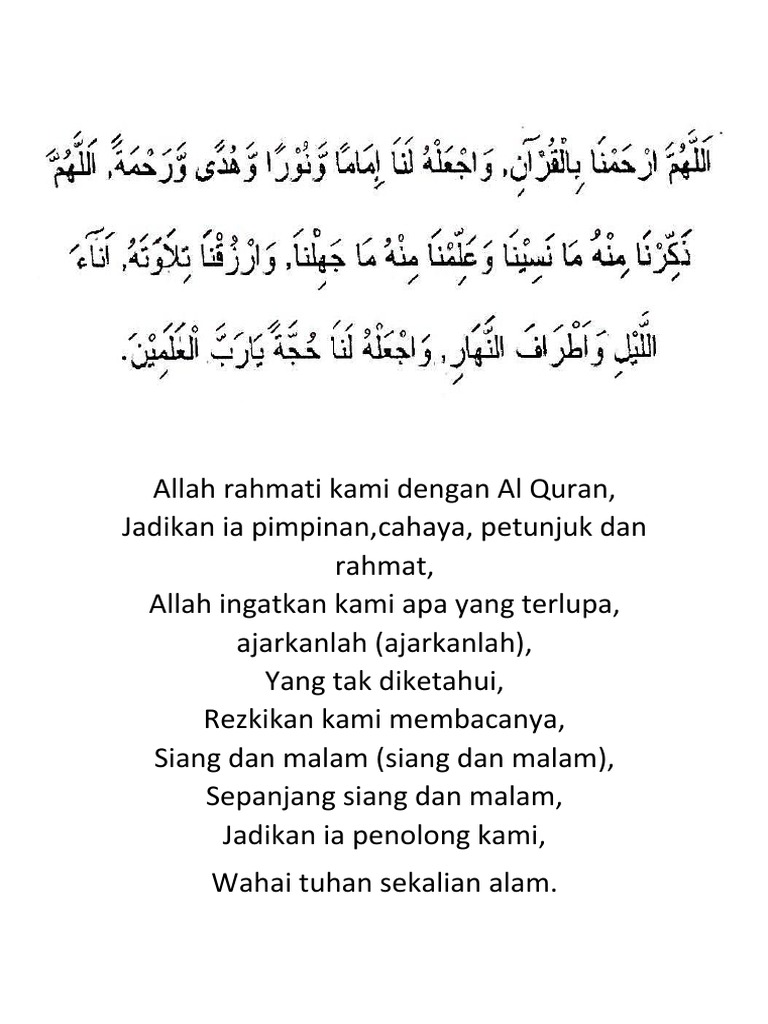 اَللَّهُمَّ ارْحَمْنَا بِالْقُرْآنِ, وَاجْعَلْهُ لَنَا إِمَامًا وَّنُوْرًا وَّهُدًى وَّرَحْمَةً, اَللَّهُمَّ
ذَكِّرْنَا مِنْهُ مَا نَسِيْنَا وَعَلِّمْنَا مِنْهُ مَا جَهِلْنَا, وَارْزُقْنَا تِلَاوَتَهُ, اَنَآءَ
اللَّيْلِ وَاَطْرَافَ النَّهَارِ, وَاجْعَلْهُ لَنَا حُجَّةً يَارَبَّ الْعٰلَمِيْنَ.
Allah rahmati kami dengan Al Quran,
Jadikan ia pimpinan,cahaya, petunjuk dan
rahmat,
Allah ingatkan kami apa yang terlupa,
ajarkanlah (ajarkanlah),
Yang tak diketahui,
Rezkikan kami membacanya,
Siang dan malam (siang dan malam),
Sepanjang siang dan malam,
Jadikan ia penolong kami,
Wahai tuhan sekalian alam.